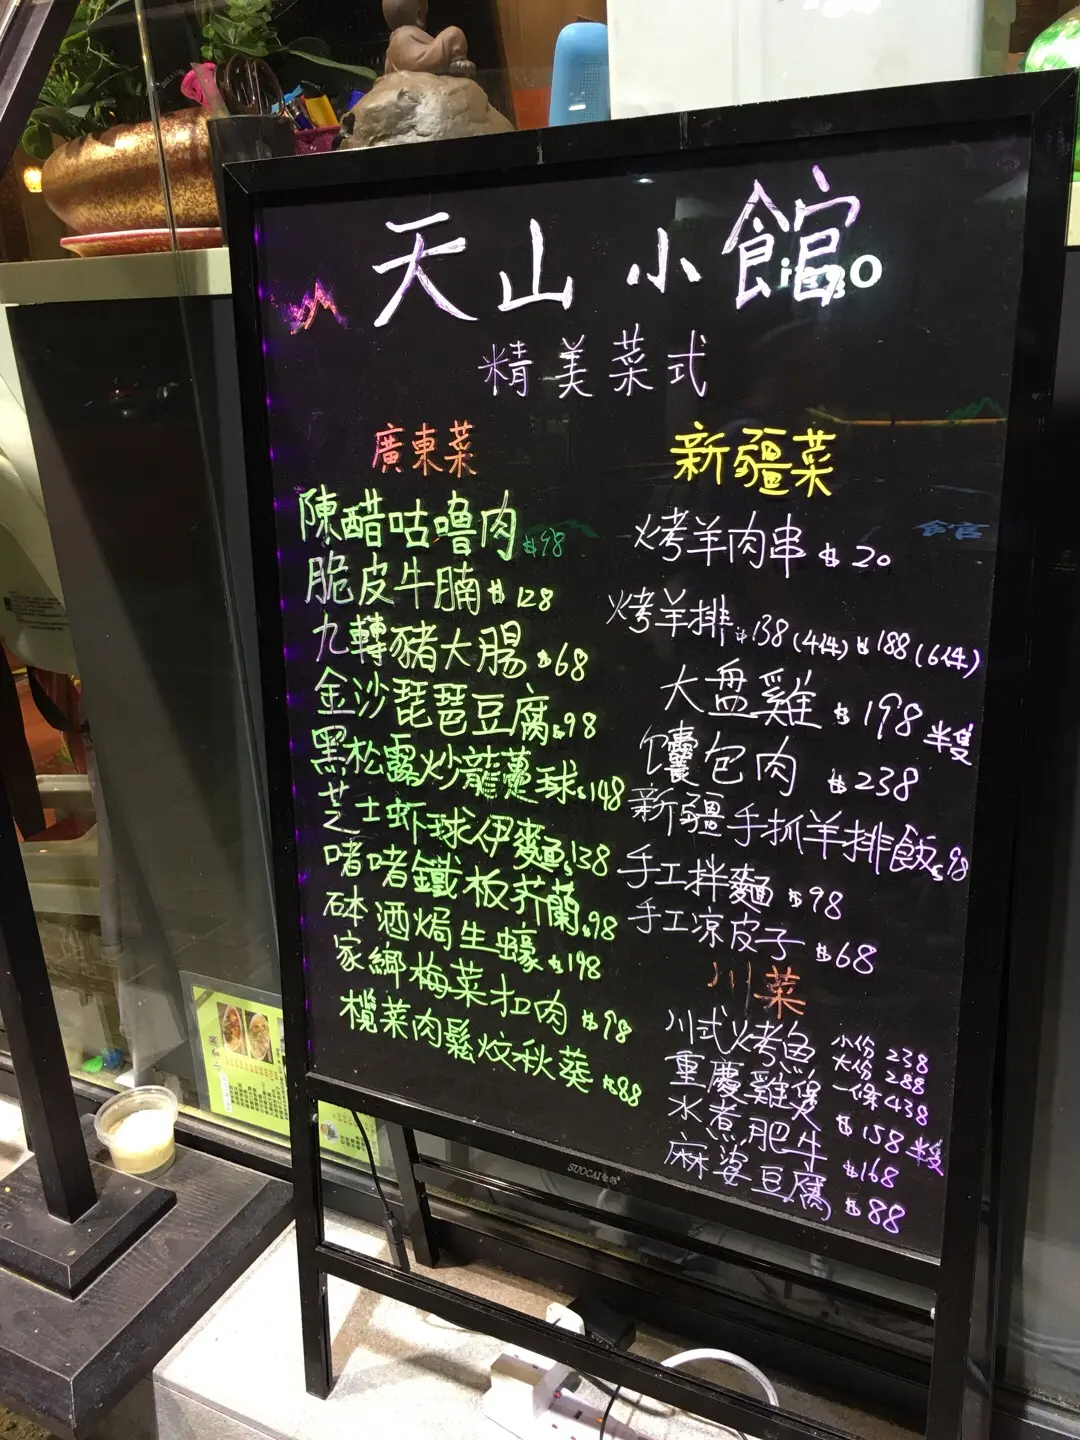 天山小館
精美菜式
廣東菜
陳醋咕嚕肉 $98
脆皮牛腩 $128
九轉豬大腸 $68
金沙琵琶豆腐 $98
黑松露炒龍躉球 $148
芝士虾球伊麵 $138
啫啫鐵板芥蘭 $98
砵酒焗生蠔 $198
家鄉梅菜扣肉 $98
欖菜肉鬆炆秋葵 $88
新疆菜
烤羊肉串 $20
烤羊排 $138(4件) $188(6件)
大盤雞 $198 半隻
饢包肉 $238
新疆手抓羊排飯 $98
手工拌麵 $98
手工凉皮子 $68
川菜
川式烤魚 小份 238
大份 288
一條 438
重慶雞煲 $158 半隻
水煮肥牛 $168
麻婆豆腐 $88
SUOCAI